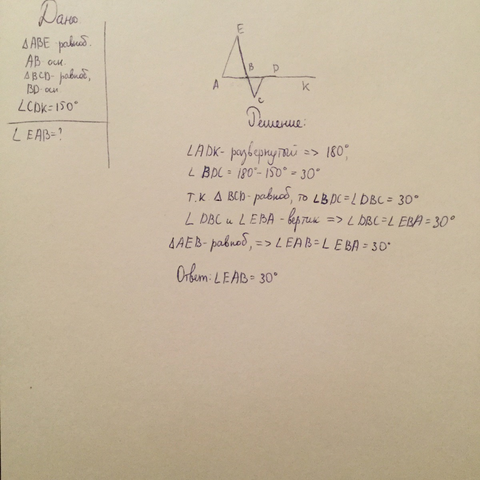 Дано.
△ABE-равноб.
AB-осн.
△BCD-равноб,
BD-осн
∠CDK=150°
∠EAB=?
E
A B D K
C
Решение:
∠ADK- развернутый => 180°,
∠BDC = 180°- 150° = 30°
т.к △ BCD-равноб, то ∠BDC=∠DBC = 30°
∠ DBC и ∠EBA - вертик => ∠DBC=∠EBA = 30°
△AEB-равноб, => ∠EAB=∠EBA = 30°
Ответ: ∠EAB= 30°